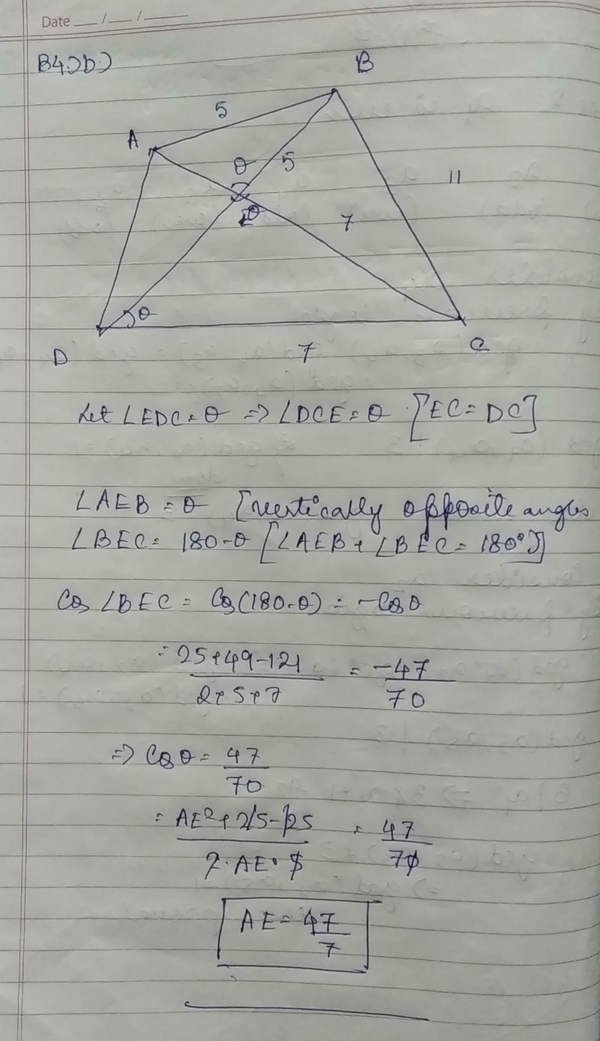 Date __/__/__
B4.)b.)
B
5
A
θ
5
11
θ
E
7
θ
D
7
C
Let ∠EDC = θ => ∠DCE = θ [EC = DC]
∠AEB = θ [vertically opposite angles
∠BEC = 180-θ [∠AEB + ∠BEC = 180°]
Cos ∠BEC = Cos(180-θ) = -Cosθ
= 25+49-121 / 2*5*7 = -47 / 70
=> Cosθ = 47 / 70
= AE²+25-25 / 2·AE·5 = 47 / 70
AE = 47 / 7